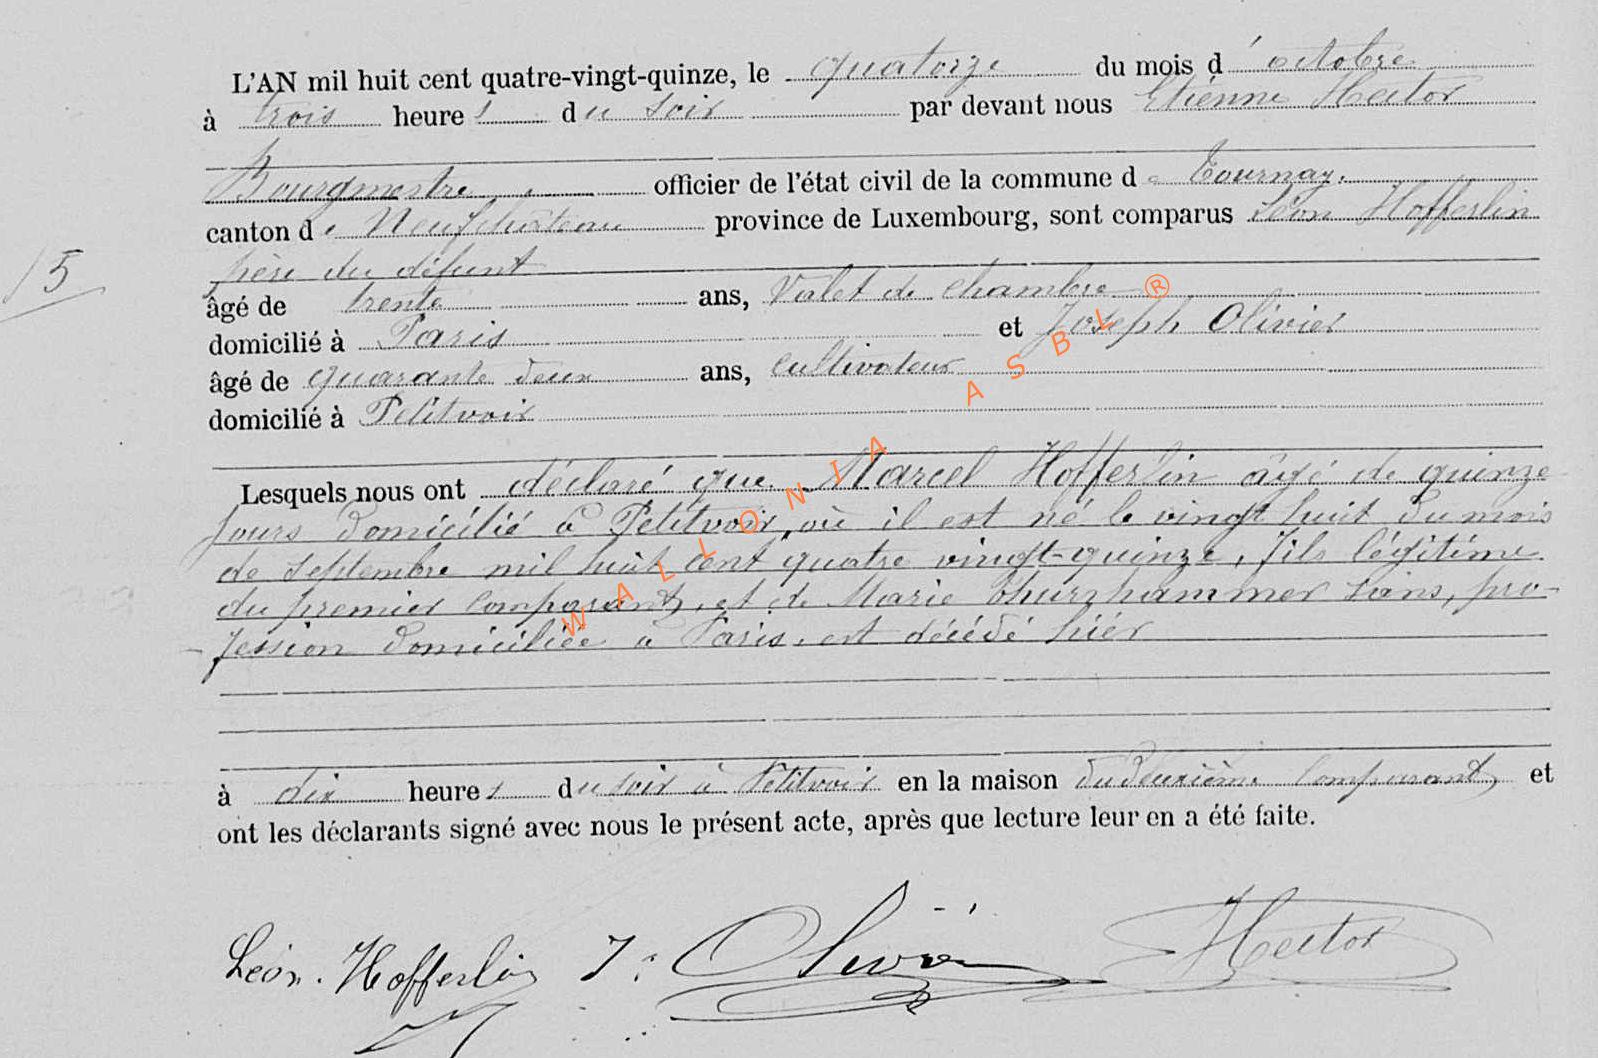 L'AN mil huit cent quatre-vingt-quinze, le quatorze du mois d'octobre
à trois heures du soir par devant nous Etienne Hector
Bourgmestre officier de l'état civil de la commune de Tournay.
canton de Neufchâteau province de Luxembourg, sont comparus Léon Hofferlin
père du défunt
15
âgé de trente ans, Valet de chambre
domicilié à Paris et Joseph Olivier
âgé de quarante deux ans, cultivateur
domicilié à Petitvoir
Lesquels nous ont déclaré que Marcel Hofferlin âgé de quinze
jours domicilié à Petitvoir, où il est né le vingt huit du mois
de septembre mil huit cent quatre vingt-quinze, fils légitime
du premier comparant, et de Marie Thurnhammer sans, pro-
-fession domiciliée à Paris, est décédé hier
à dix heures du soir à Petitvoir en la maison du deuxième comparant, et
ont les déclarants signé avec nous le présent acte, après que lecture leur en a été faite.
Léon. Hofferlin J: Olivier Hector
WALLONIA ASBL ®